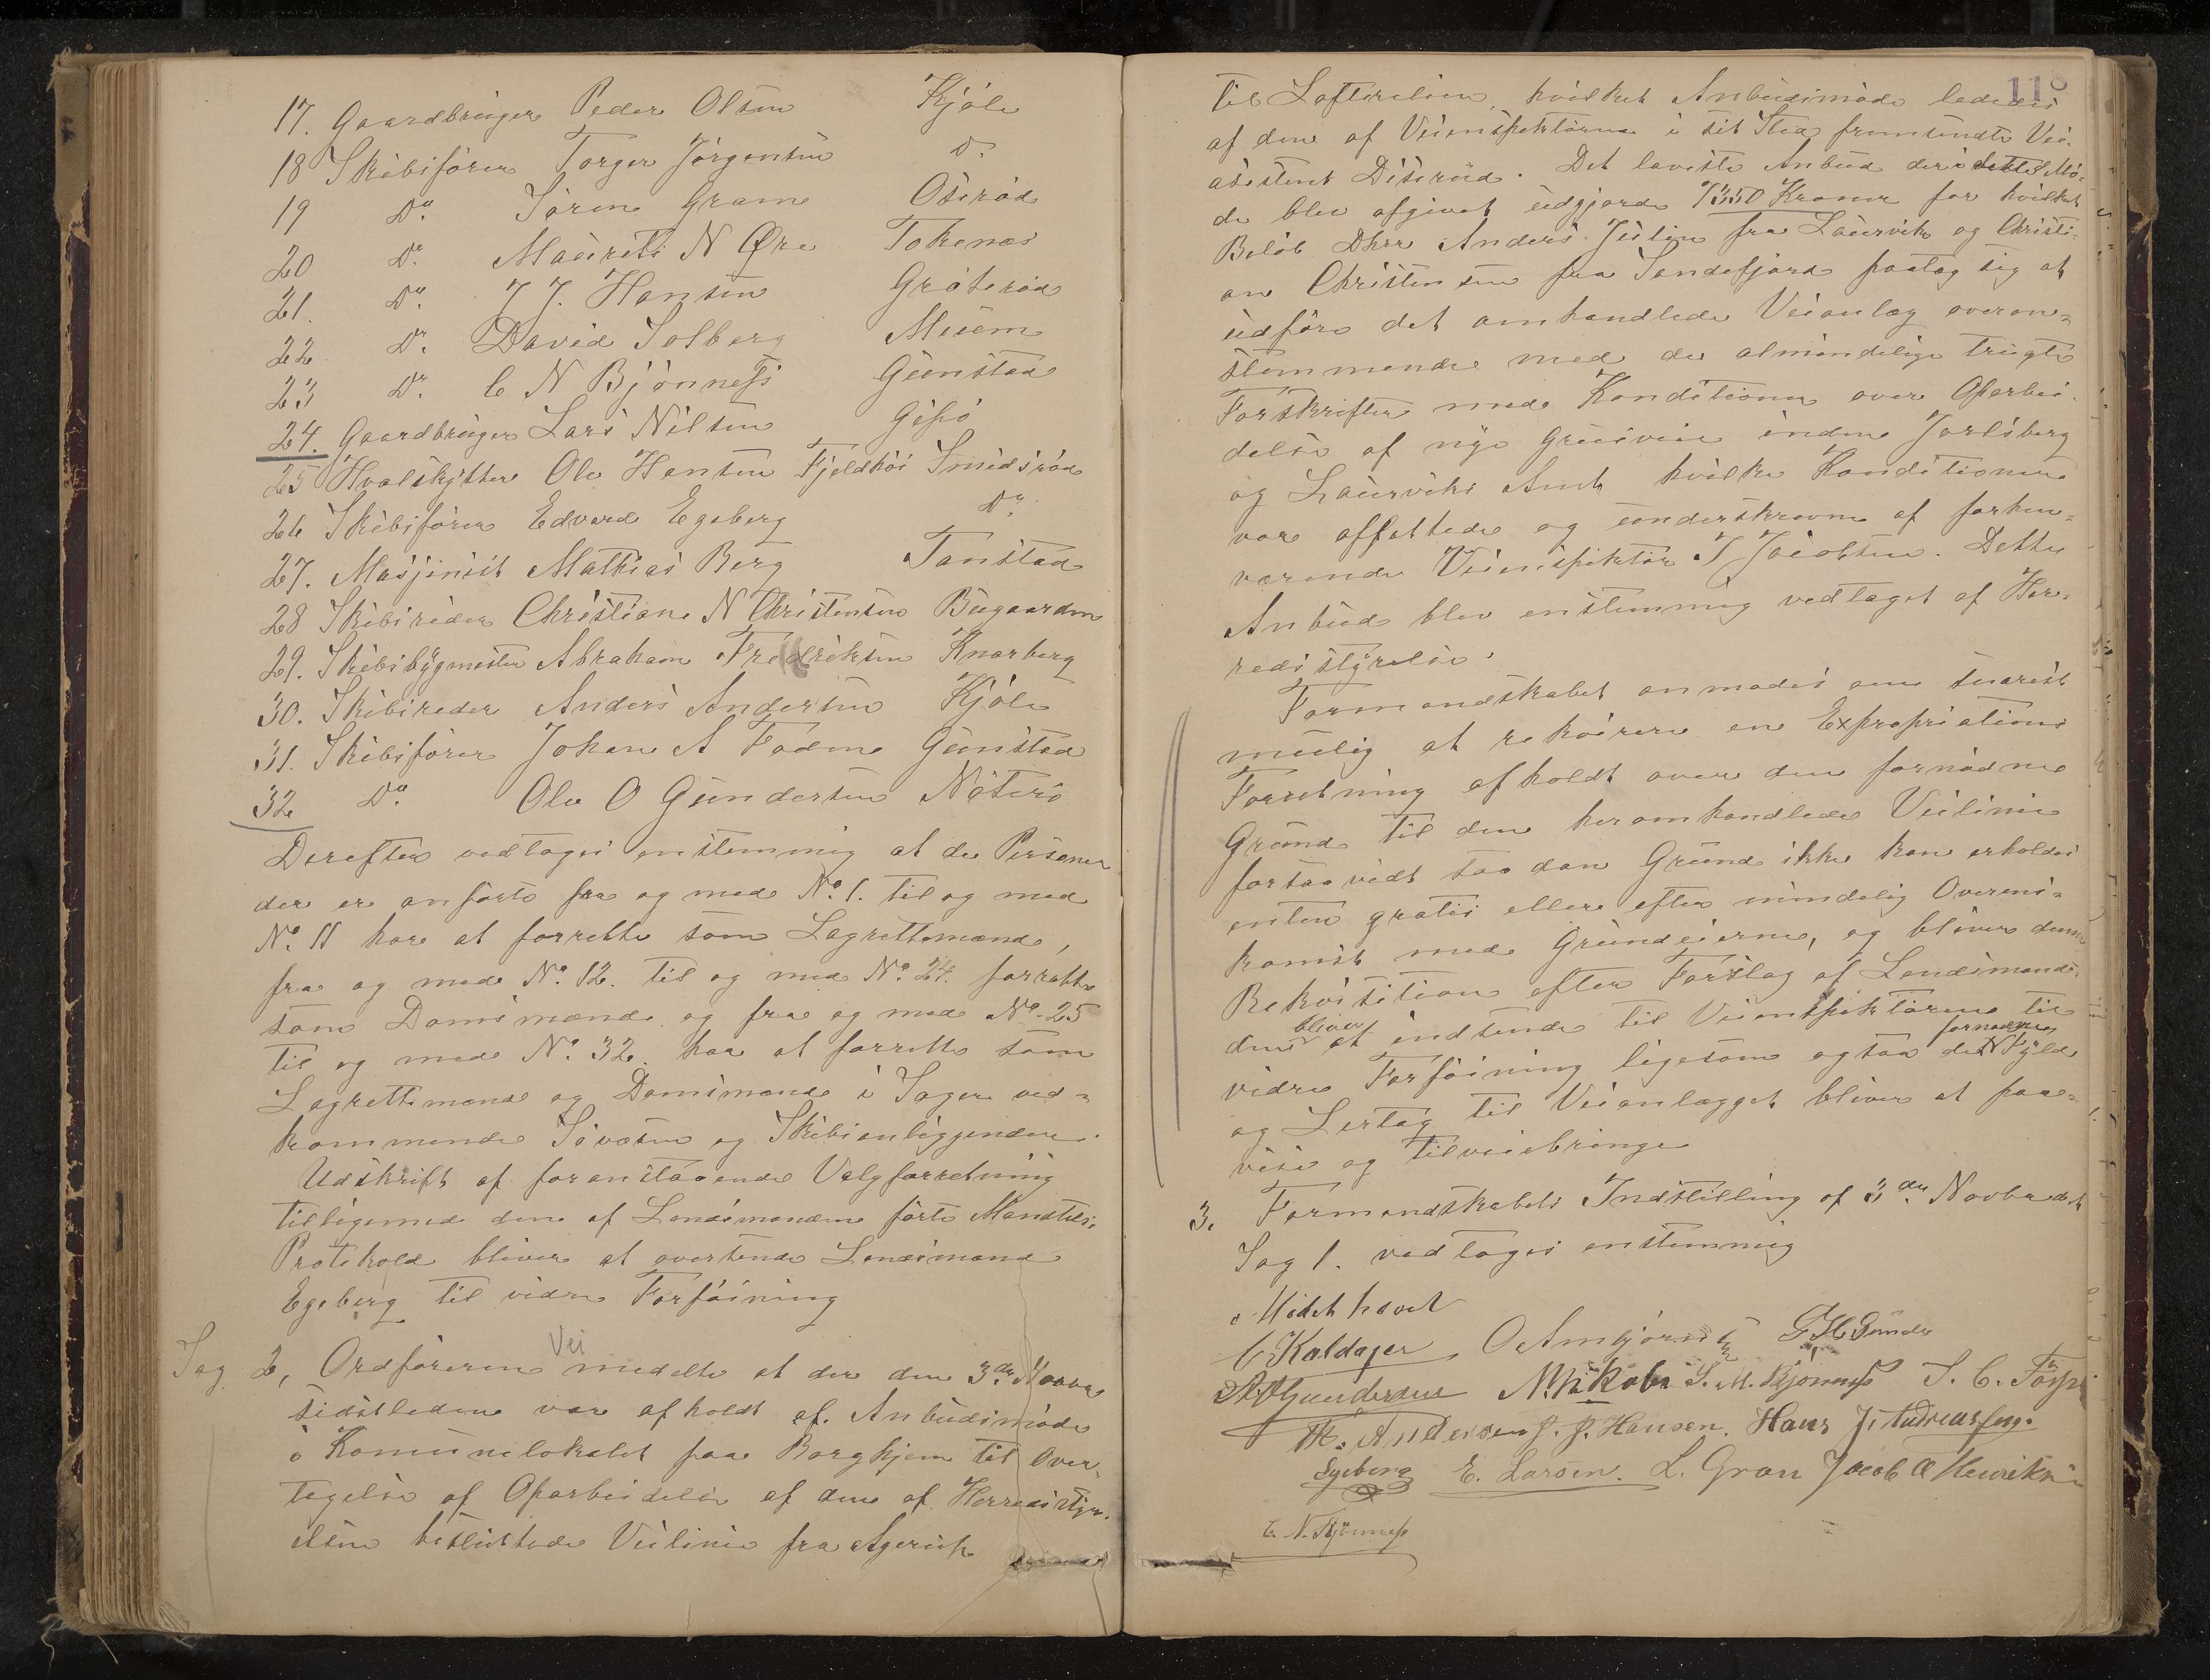 17. Gaardbruger Peder Olsen Kjøle
18 Skibsfører Torger Jørgensen Do
19 Do Søren Gram Oserød
20 Do Mauritz N Øre Tokenæs
21. Do J J. Hansen Grøterød
22 Do David Solberg Meum
23 Do C N Bjønness Gunstad
24. Gaardbruger Lars Nilsen Gipø
25 Hvalskytter Ole Hansen Fjeldhøi Smidsrød
26 Skibsfører Edvard Egeberg Do
27. Masjinist Mathias Berg Tanstad
28 Skibsreder Christian N Christensen Bugaarden
29. Skibsbygmester Abraham Fredriksen Knarberg
30. Skibsreder Anders Andersen Kjøle
31. Skibsfører Johan A Foden Gunstad
32 Do Ole O Gundersen Nøterø
Derefter vedtoges enstemmig at de Personer
der er anførte fra og med No 1. til og med
No. 11 har at forrette som Lagrettemænd,
fra og med No. 12. til og med No. 24. forrette
som Domsmænd og fra og med No. 25
til og med No. 32. har at forrette som
Lagrettemænd og Domsmænd i Sager ved-
kommende Søvæsen og Skibsanliggender.
Udskrift af foranstaaende Valgforretning
tilligemed den af Lensmanden førte Mandtals
Protokold bliver at oversende Lensmand
Egeberg til vidre Forføining
Sag 2, Ordføreren medelte at der den 3de Novbr
Vei
sidstleden var afholdt af Anbudsmøde
i Komunelokalet paa Borgheim til Over-
tagelse af Oparbeidelse af den af Herredsstyr-
elsen besluttede Veilinie fra Agerup
118
til Loftsrelien, hvilket Anbudsmøde lededes
af den af Veiinspektøren i sit Sted fremsendte Vei-
asistent Diserud. Det laveste Anbud der i dette Mø-
de blev afgivet udgjorde 7350 Kroner for hvilket
Beløb Dhrr Anders Julin fra Laurvik og Christi-
an Christensen fra Sandefjord paatog sig at
udføre det omhandlede Veianlæg overens-
stemmende med de almindelige trygte
Forskrifter med Konditioner over Oparbei-
delse af nye Grusveie inden Jarlsberg
og Laurviks Amt hvilke Konditioner
var affattede og underskrevne af forhen-
værende Veiinspektør J Jacobsen. Dette
Anbud blev enstemmig vedtaget af Her-
redsstyrelse.
Formandskabet anmodes om snarest
mulig at rekvirere en Expropriations
Forretning afholdt over den fornødne
Grund til den heromhandlede Veilinie
forsaavidt saadan Grund ikke kan erholdes
enten gratis eller efter mindelig Overens-
komst med Grundeierne, og bliver denne
Rekvisition efter Forslag af Lensmand-
den bliver at indsende til Veiinspektøren til
vidre Forføining ligesom ogsaa det fornødne Fyld
og Lertag til Veianlægget bliver at paa-
vise og tilveiebringe
3. Formandskabets Indstilling af 3de Novbr dt
Sag 1. vedtoges enstemmig
Mødet hævet
C Kaldager O Ambjørnsen G H Gunder
A. Gundersen N. Jakobs S. M. Bjønness S. C. Foss
M. Andersen J. J. Hansen. Hans J. Andreassen.
Egeberg E. Larsen. L. Gran Jacob A Henriksen
C. N. Bjønness